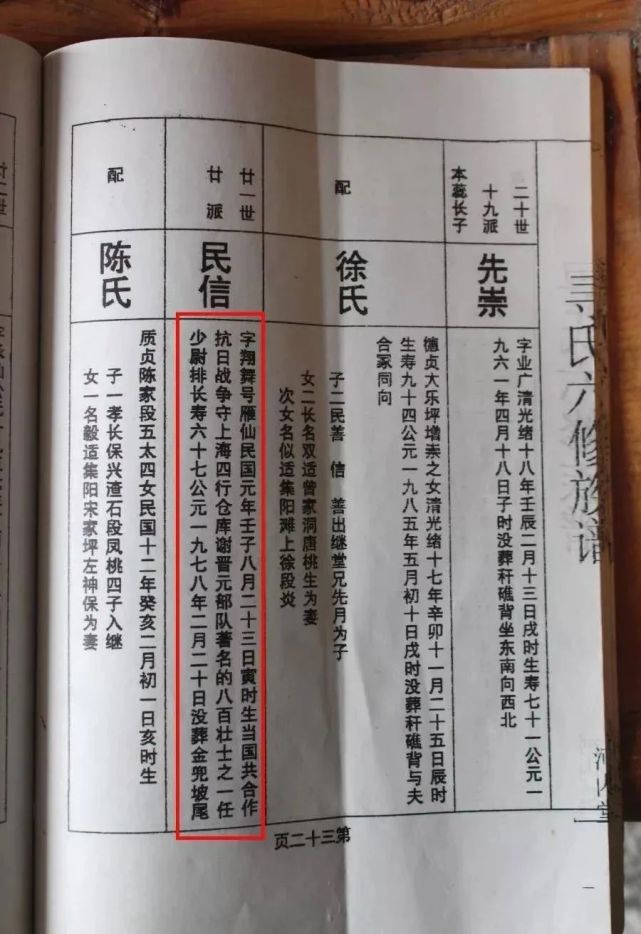 氏六修族谱
二十世
十九派
本蕊长子
先崇
字业广清光绪十八年壬辰二月十三日戌时生寿七十一公元一
九六一年四月十八日子时没葬秆礁背坐东南向西北
配
徐氏
德贞大乐坪增崇之女清光绪十七年辛卯十一月二十五日辰时
生寿九十四公元一九八五年五月初十日戌时没葬秆礁背与夫
合冢同向
子二民善 信 善出继堂兄先月为子
女二长名双适曾家洞唐桃生为妻
次女名似适集阳滩上徐段炎
廿一世
廿派
民信
字翔舞号雁仙民国元年壬子八月二十三日寅时生当国共合作
抗日战争守上海四行仓库谢晋元部队著名的八百壮士之一任
少尉排长寿六十七公元一九七八年二月二十日没葬金兜坡尾
配
陈氏
质贞陈家段五太四女民国十二年癸亥二月初一日亥时生
子一孝长保兴渣石段凤桃四子入继
女一名毅适集阳宋家坪左神保为妻
第三十二页